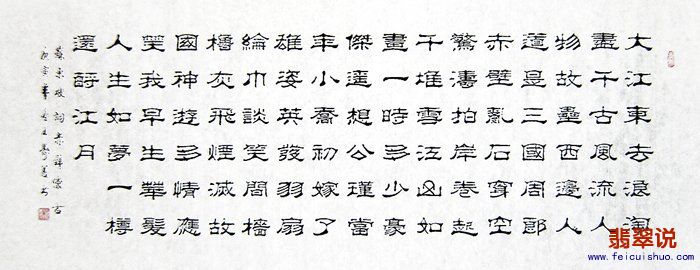 大江東去浪淘
盡千古風流人
物故壘西邊人
道是三國周郎
赤壁亂石穿空
驚濤拍岸卷起
千堆雪江山如
畫一時多少豪
傑遥想公瑾當
年小喬初嫁了
雄姿英發羽扇
綸巾談笑間檣
櫓灰飛煙滅故
國神遊多情應
笑我早生華髮
人生如夢一樽
還酹江月
蘇東坡詞赤壁懷古
翡翠说
www.feicuishuo.com